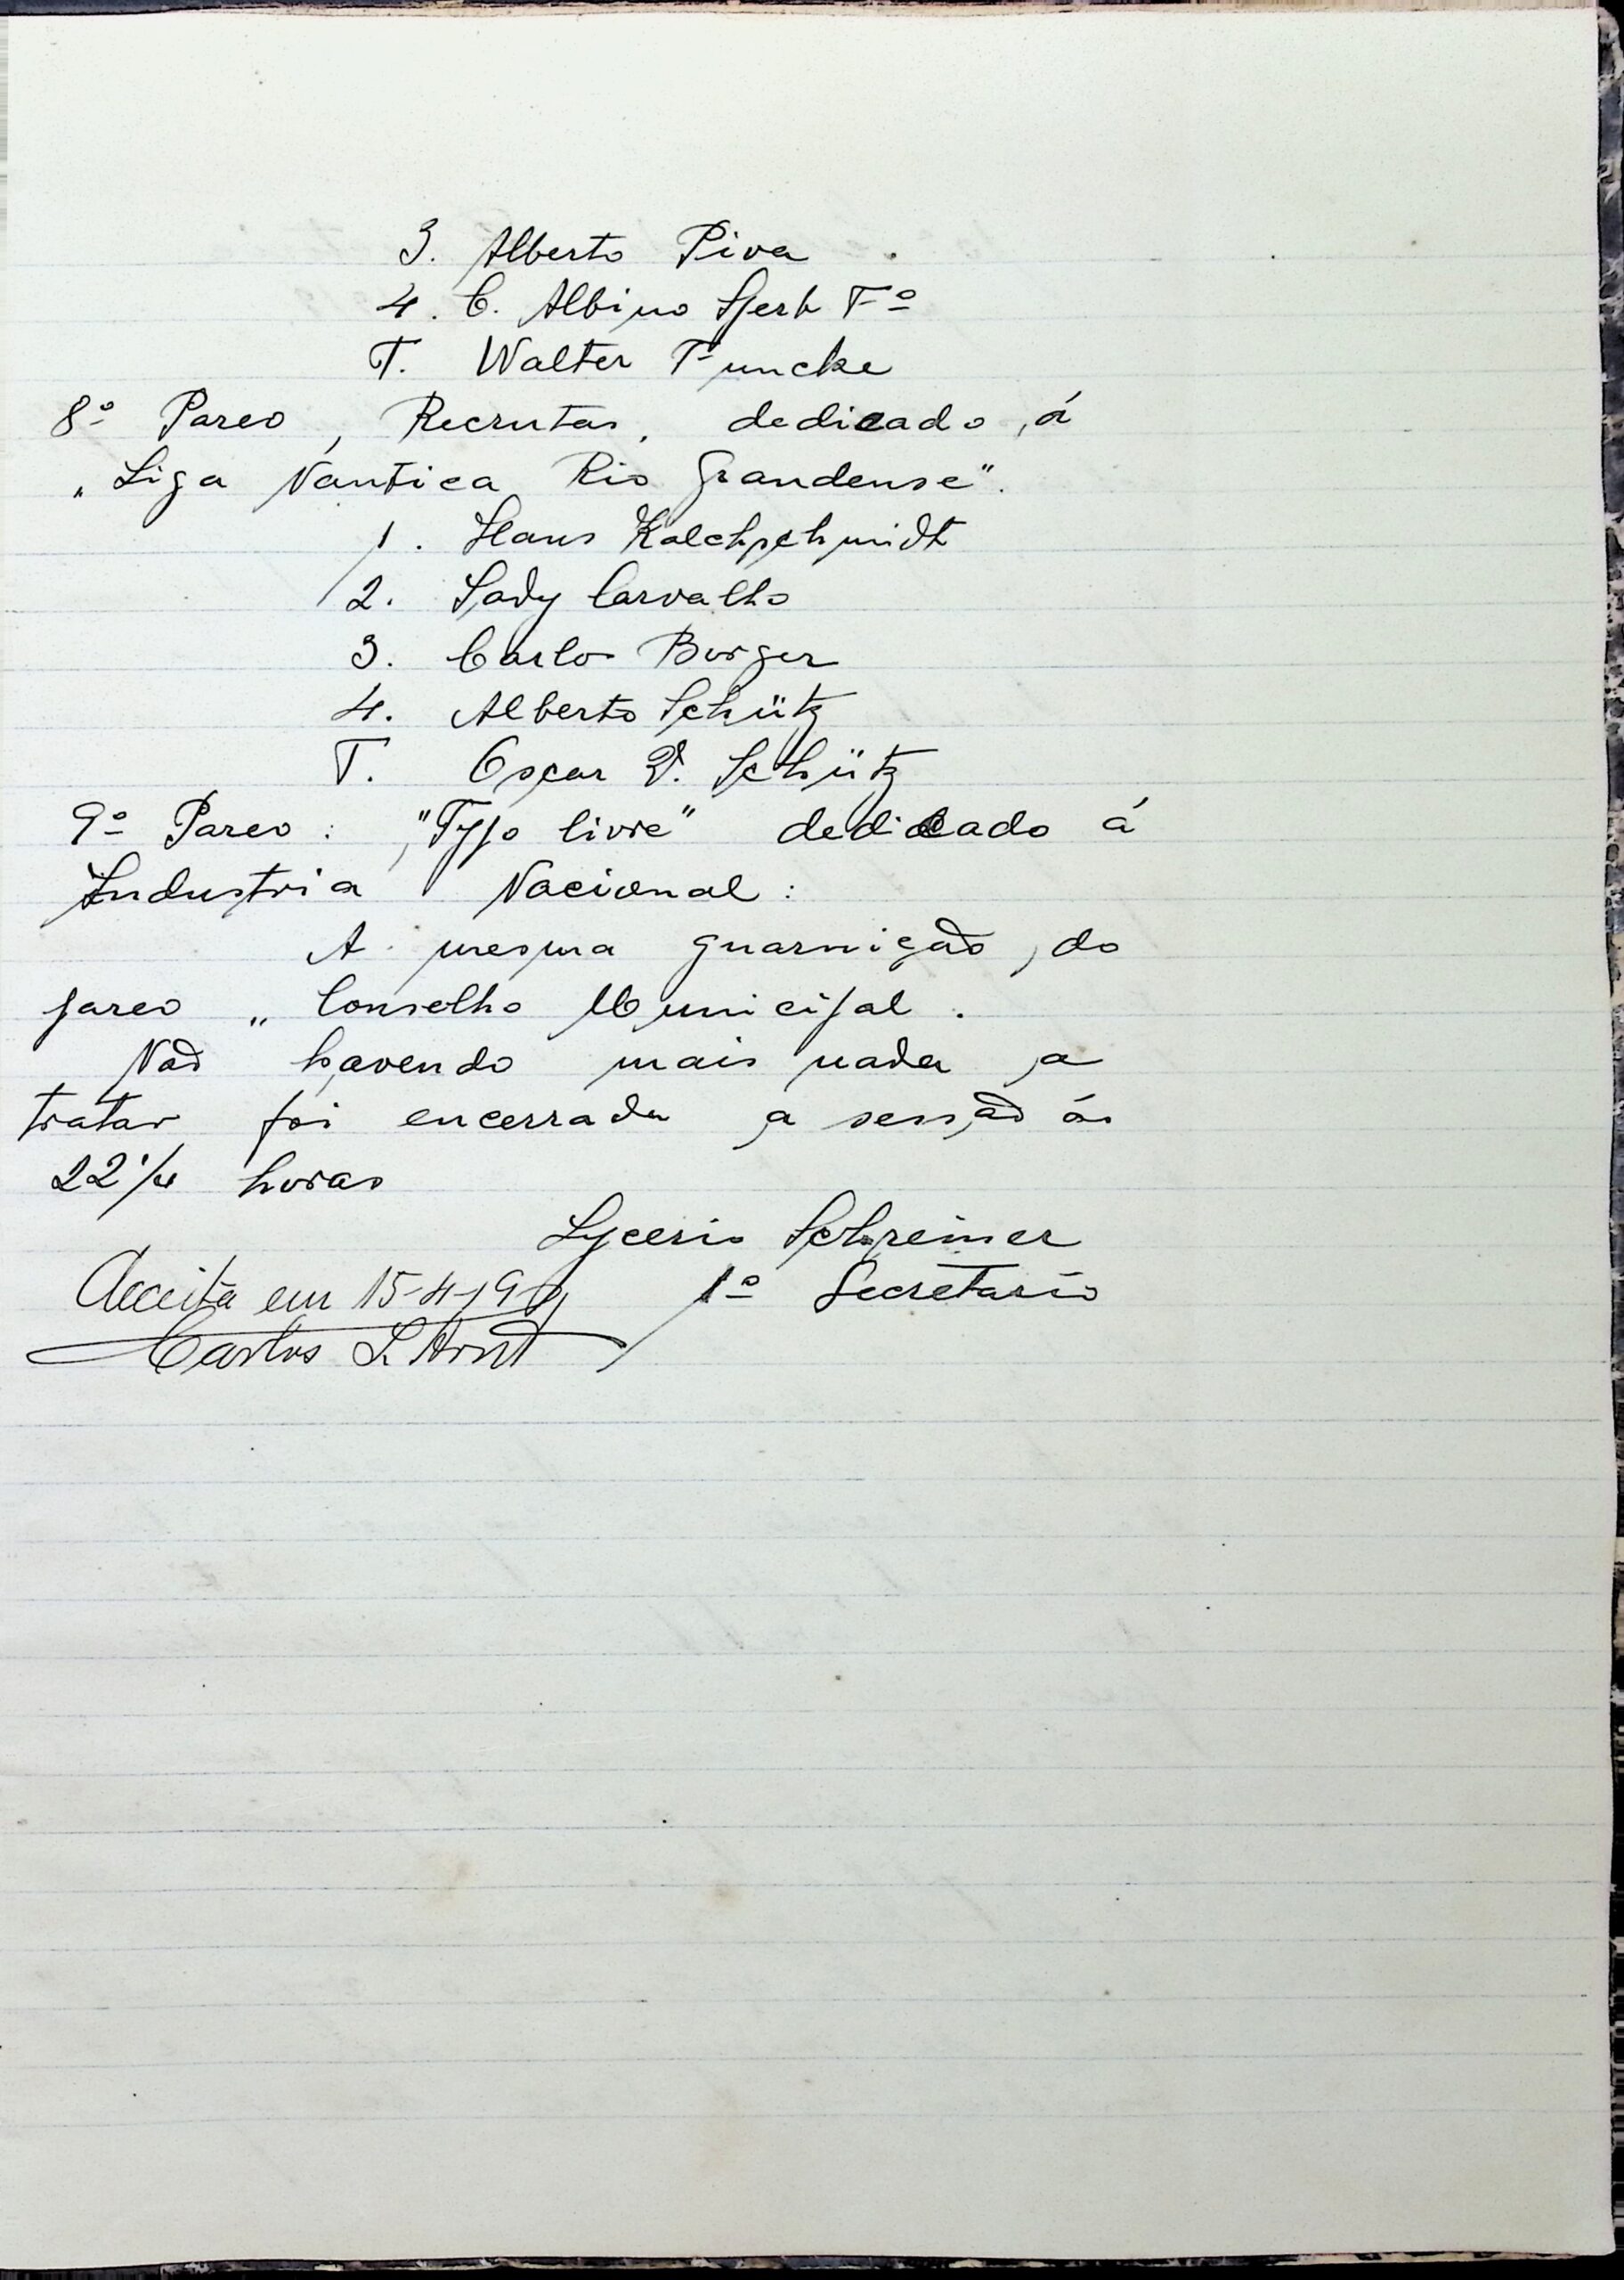 3. Alberto Piva
4. C. Albino Sperb Fº
T. Walter Funcke
8º Pareo, Recrutas, dedicado á
„Liga Nautica Rio Grandense".
1. Hans Kalchschmidt
2. Sady Carvalho
3. Carlos Borger
4. Alberto Schütz
T. Oscar D. Schütz
9º Pareo: "Typo livre" dedicado á
Industria Nacional:
A mesma guarnição, do
pareo „Conselho Municipal.
Não havendo mais nada a
tratar foi encerrada a sessão ás
22 1/4 horas
Lycerio Schreiner
Acceita em 15-4-19 1º Secretario
Carlos L. Arnt